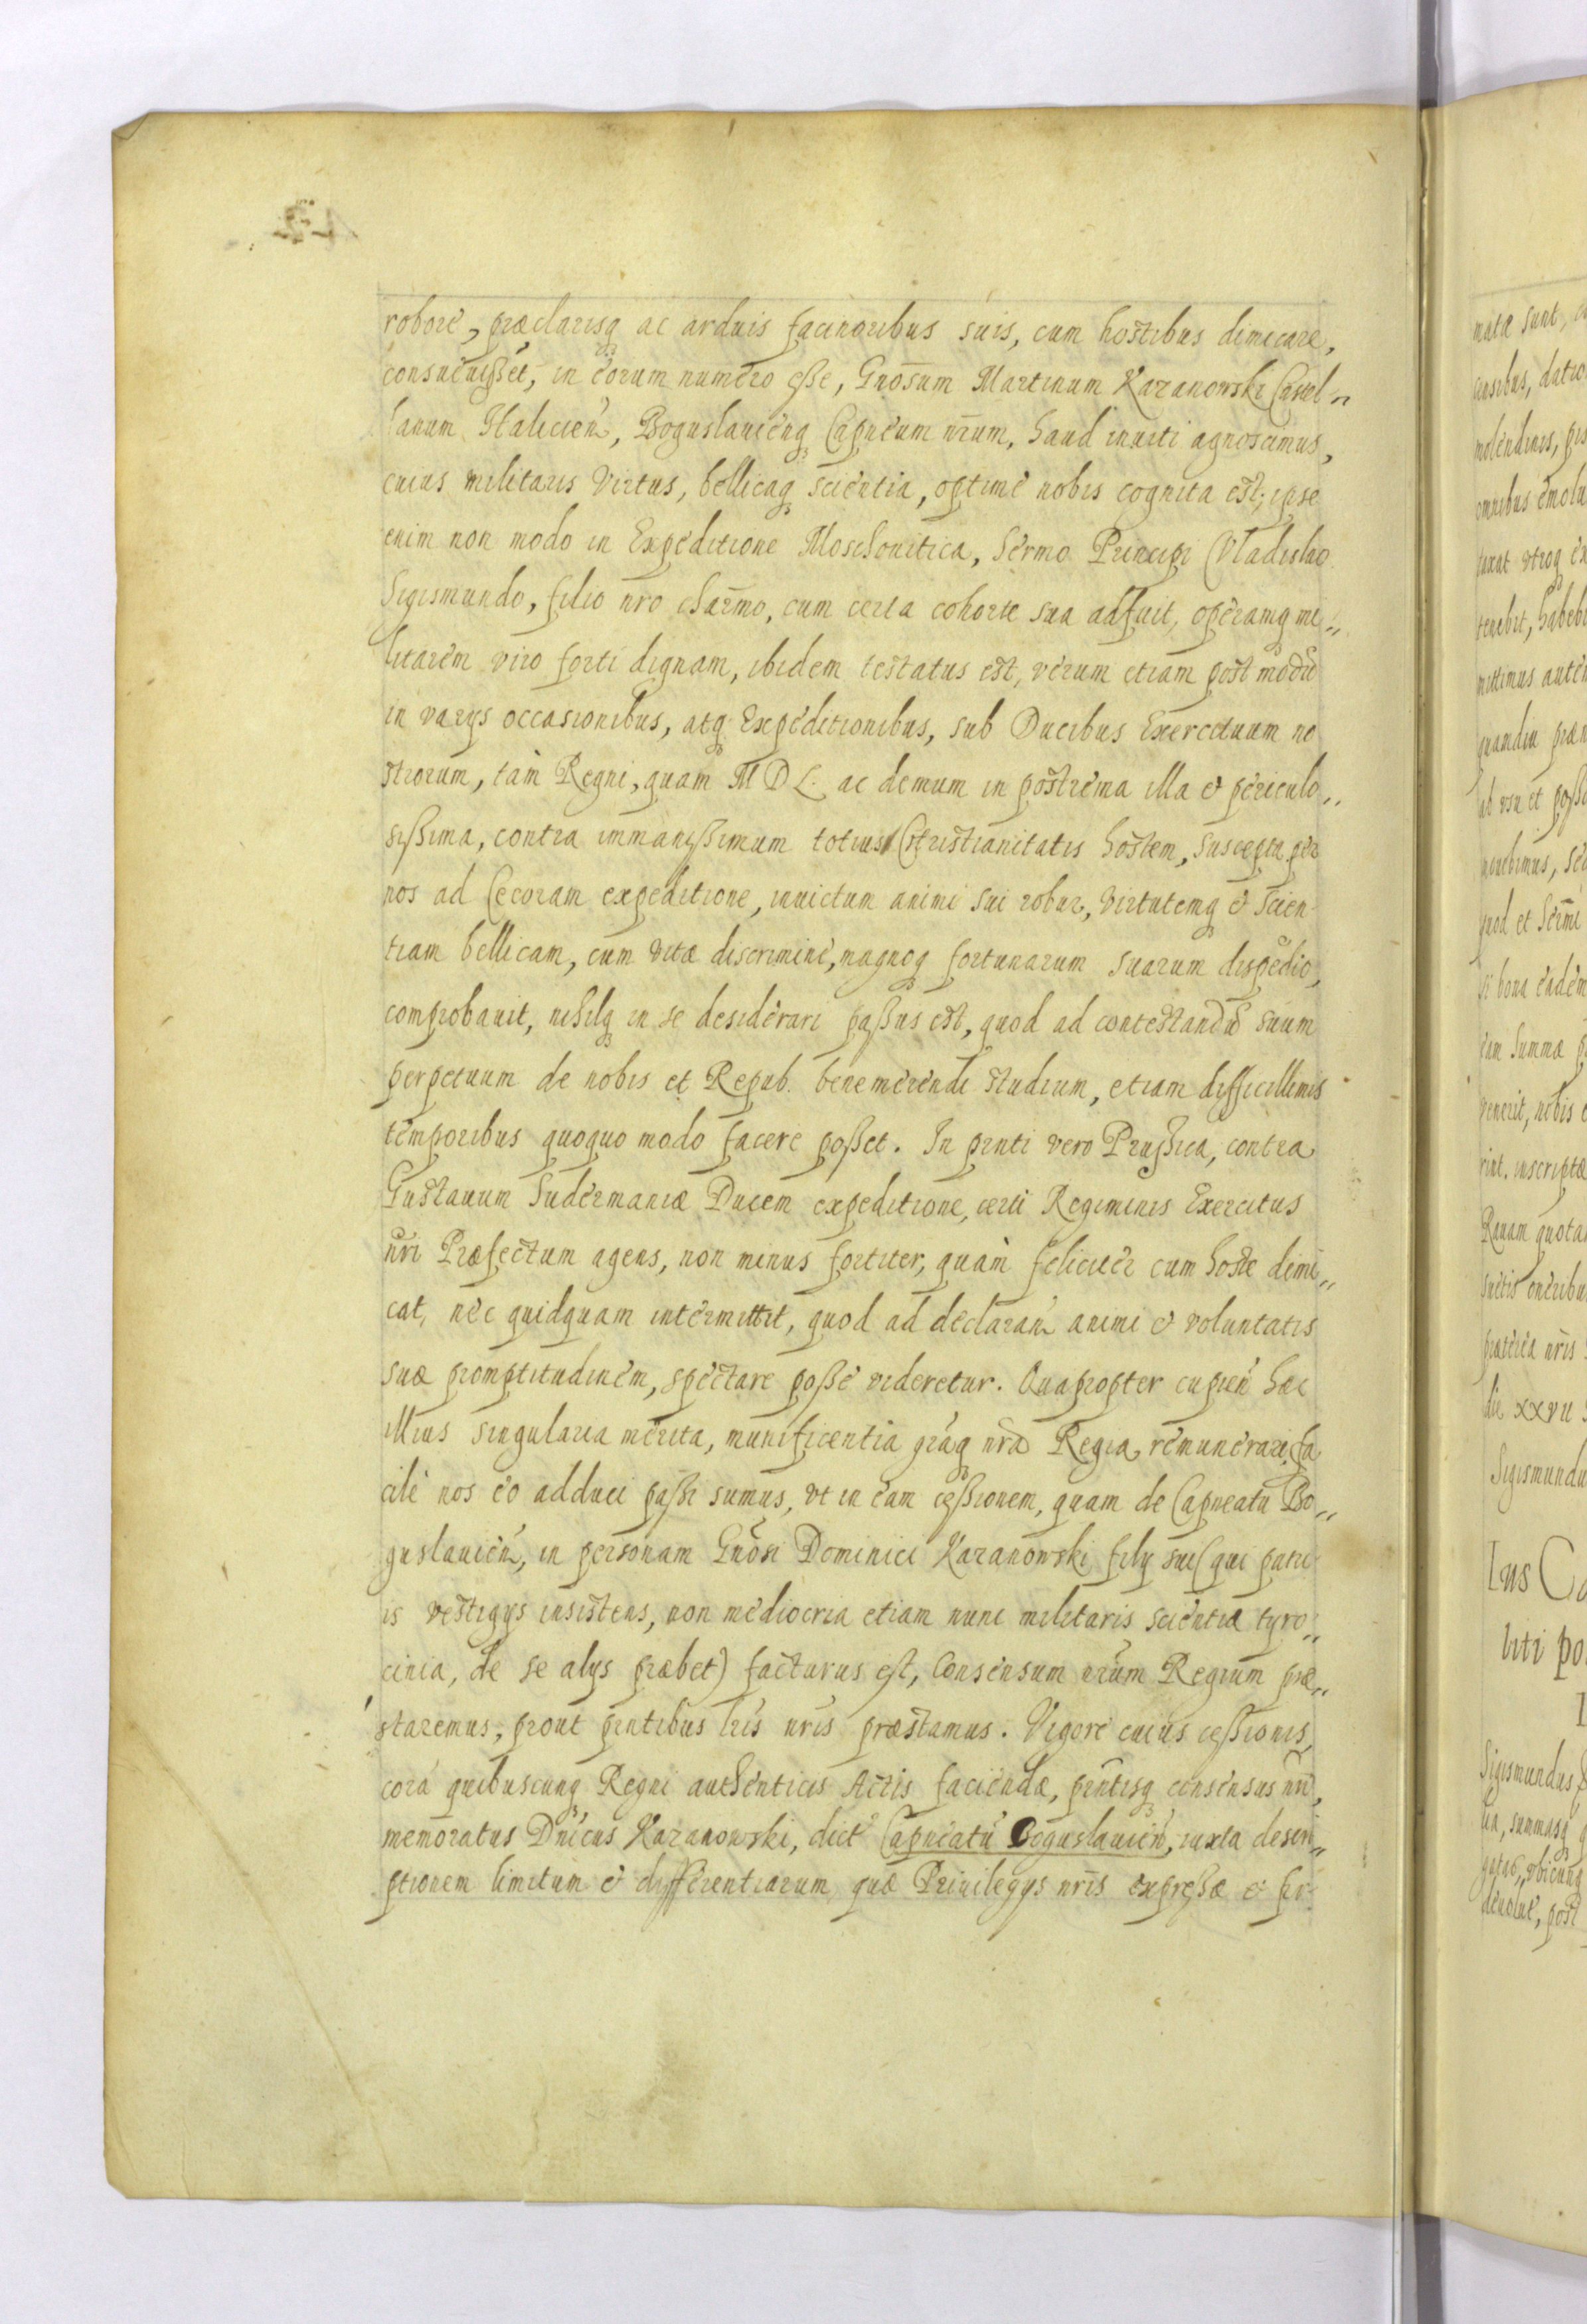 robore, præclarisq ac arduis facinoribus suis, cum hostibus dimicare,
consueuisset, in eorum numero esse, Gnosum Martinum Kazanowski Castel„
lanum Halicień, Boguslauienq Capneum nrum, haud inuiti agnoscimus,
cuius militaris virtus, bellicaq scientia, optimè nobis cognita est; ipse
enim non modo in Expeditione Moschouitica, Sermo Principi Vladislao
Sigismundo, filio nro charmo, cum certa cohorte sua adfuit, operamq mi„
litarem viro forti dignam, ibidem testatus est, verum etiam post modū
in varys occasionibus, atq Expeditionibus, sub Ducibus Exercituum no
strorum, tàm Regni, quam M D L. ac demum in postrema illa & periculo„
sissima, contra immanissimum totius Christianitatis hostem, suscepta per
nos ad Cecoram expeditione, inuictum animi sui robur, virtutemq & scien
tiam bellicam, cum vitæ discrimine, magnoq fortunarum suarum dispēdio,
comprobauit, nihilq in se desiderari passus est, quod ad contestandū suum
perpetuum de nobis et Repub. benemerendi studium, etiam difficillimis
temporibus quoquo modo facere posset. In pnti vero Prussica, contra
Gustauum Sudermaniæ Ducem expeditione, certi Regiminis Exercitus
nri Præfectum agens, non minus fortiter, quàm feliciter cum hoste dimi„
cat, nec quidquam intermittit, quod ad declaran animi & voluntatis
suæ promptitudinem, spectare posse videretur. Quapropter cupień hæc
illius singularia merita, munificentia graq nra Regia remunerari, fa
cilè nos eò adduci passi sumus, vt in eam cessionem, quam de Capneatu Bo„
guslauień, in personam Gnosi Dominici Kazanowski fily sui (qui patri
is vestigys insistens, non mediocria etiam nunc militaris scientiæ tyro„
cinia, de se alys præbet) facturus est, Consensum nrum Regium præ„
staremus, prout pntibus lris nris præstamus. Vigore cuius cessionis,
corā quibuscunq Regni authenticis Actis faciendæ, pntisq consensus nri,
memoratus Dnicus Kazanowski, dict Capneatū Boguslauień, iuxta descri„
ptionem limitum & differentiarum quæ Priuilegys nris expressæ & fir